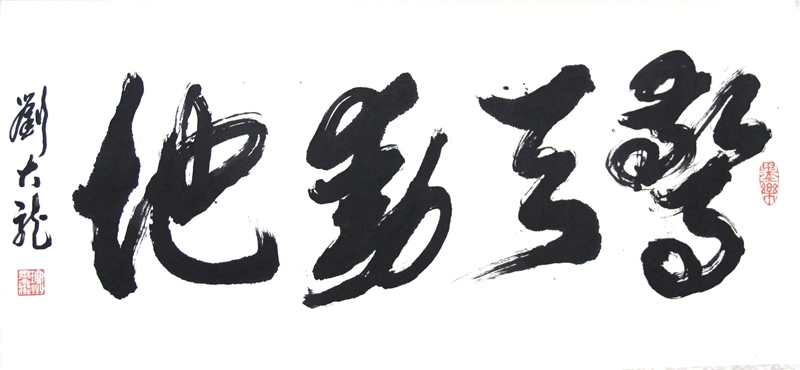 驚天動地
劉大龍